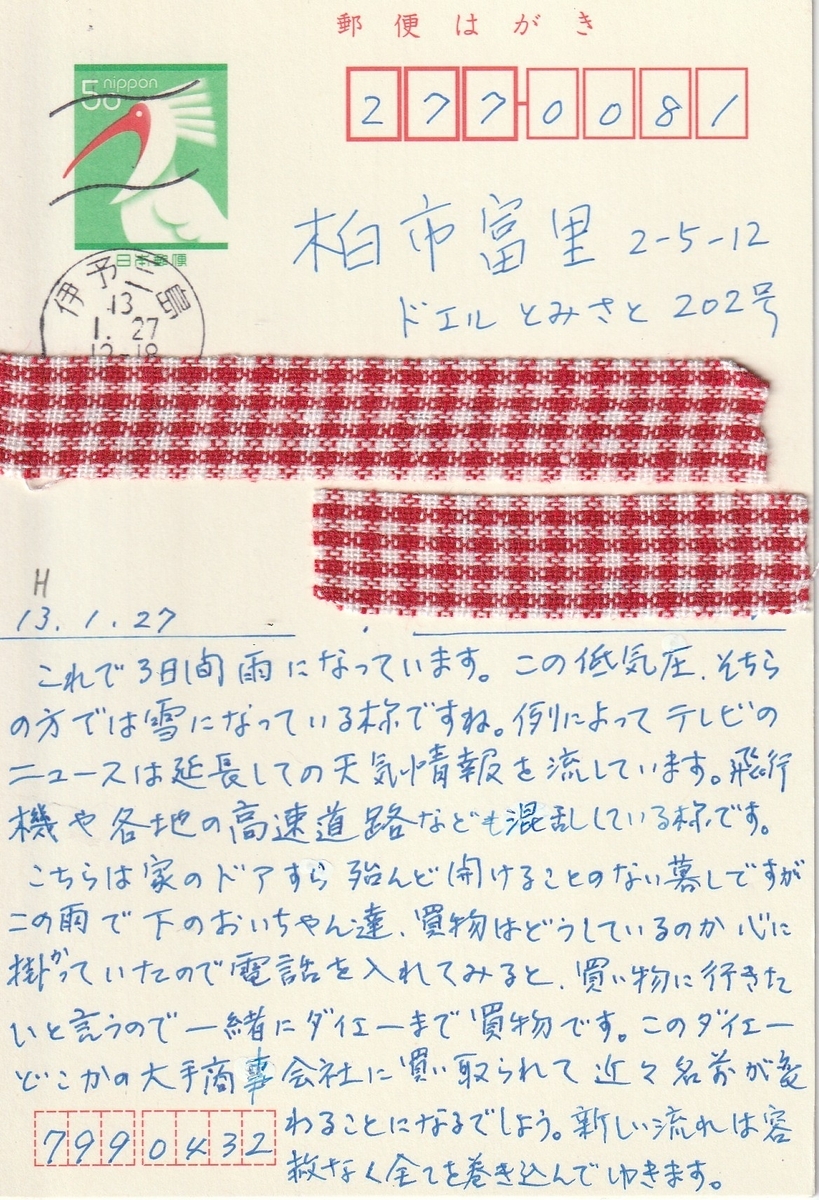 郵便はがき
50 nippon
日本郵便
277-0081
伊予三島
13.
1.27
12-18
柏市富里 2-5-12
ドエル とみさと 202号
H
13.1.27
これで3日間雨になっています。この低気圧、そちら
の方では雪になっている様ですね。例によってテレビの
ニュースは延長しての天気情報を流しています。飛行
機や各地の高速道路なども混乱している様です。
こちらは家のドアすら殆んど開けることのない暮しですが
この雨で下のおいちゃん達、買物はどうしているのか心に
掛かっていたので電話を入れてみると、買い物に行きた
いと言うので一緒にダイエーまで買物です。このダイエー
どこかの大手商事会社に買い取られて近々名前が変
わることになるでしょう。新しい流れは容
赦なく全てを巻き込んでゆきます。
7990432